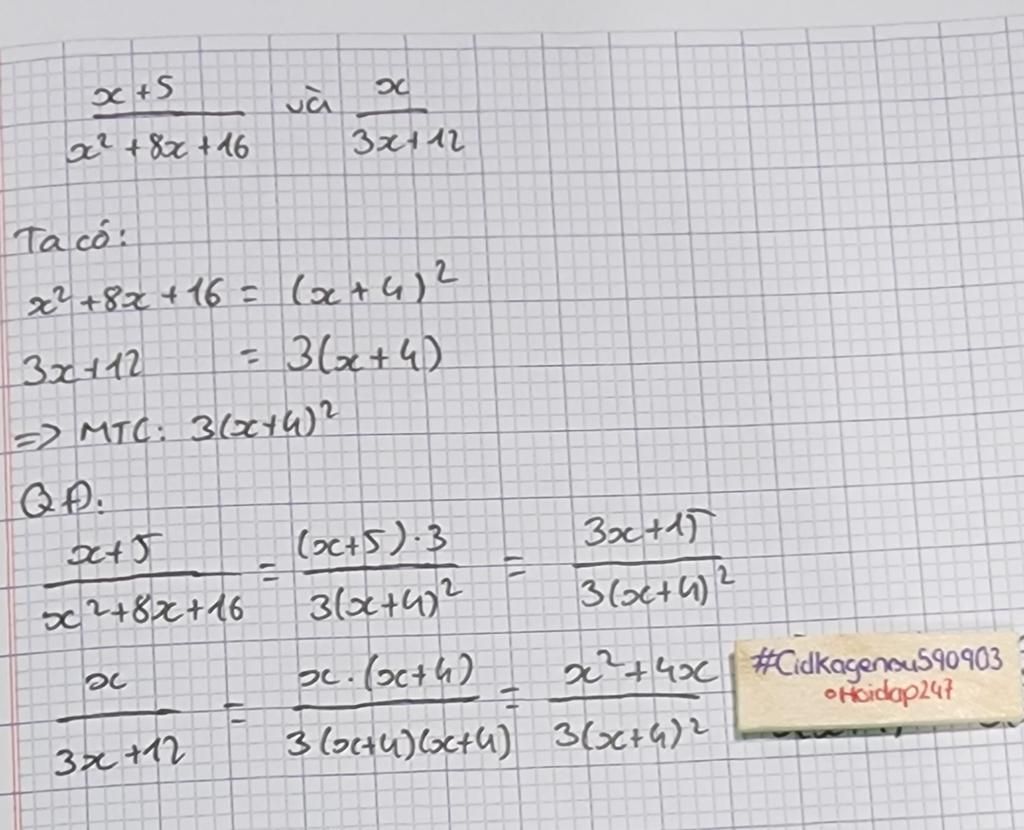 x+5 / x²+8x+16 và x / 3x+12
Ta có:
x²+8x+16 = (x+4)²
3x+12 = 3(x+4)
=> MTC: 3(x+4)²
QĐ:
x+5 / x²+8x+16 = (x+5)·3 / 3(x+4)² = 3x+15 / 3(x+4)²
x / 3x+12 = x·(x+4) / 3(x+4)(x+4) = x²+4x / 3(x+4)²
#Cidkagenou590903
Hoidap247